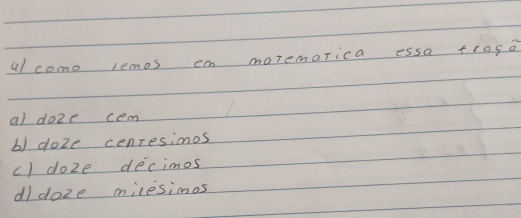 4) como lemos em matematica essa fraçã
a) doze cem
b) doze centesimos
c) doze décimos
d) doze milésimos